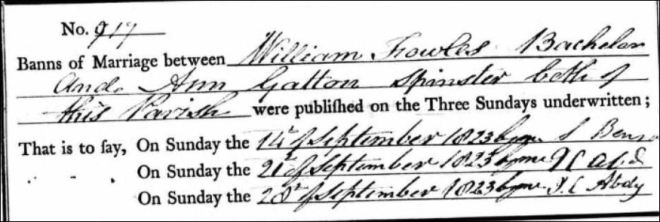 No. 917
Banns of Marriage between William Fowles Bachelor
And Ann Gatton Spinster both of
this Parish were publiſhed on the Three Sundays underwritten;
That is to ſay, On Sunday the 14th of September 1823 by me
On Sunday the 21st of September 1823 by me
On Sunday the 28th of September 1823 by me J C Abdy